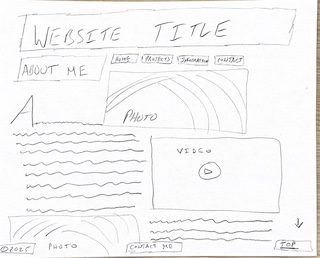 WEBSITE TITLE
ABOUT ME
HOME PROJECTS CONTACT
PHOTO
A
VIDEO
PHOTO
©2025
CONTACT ME
TOP